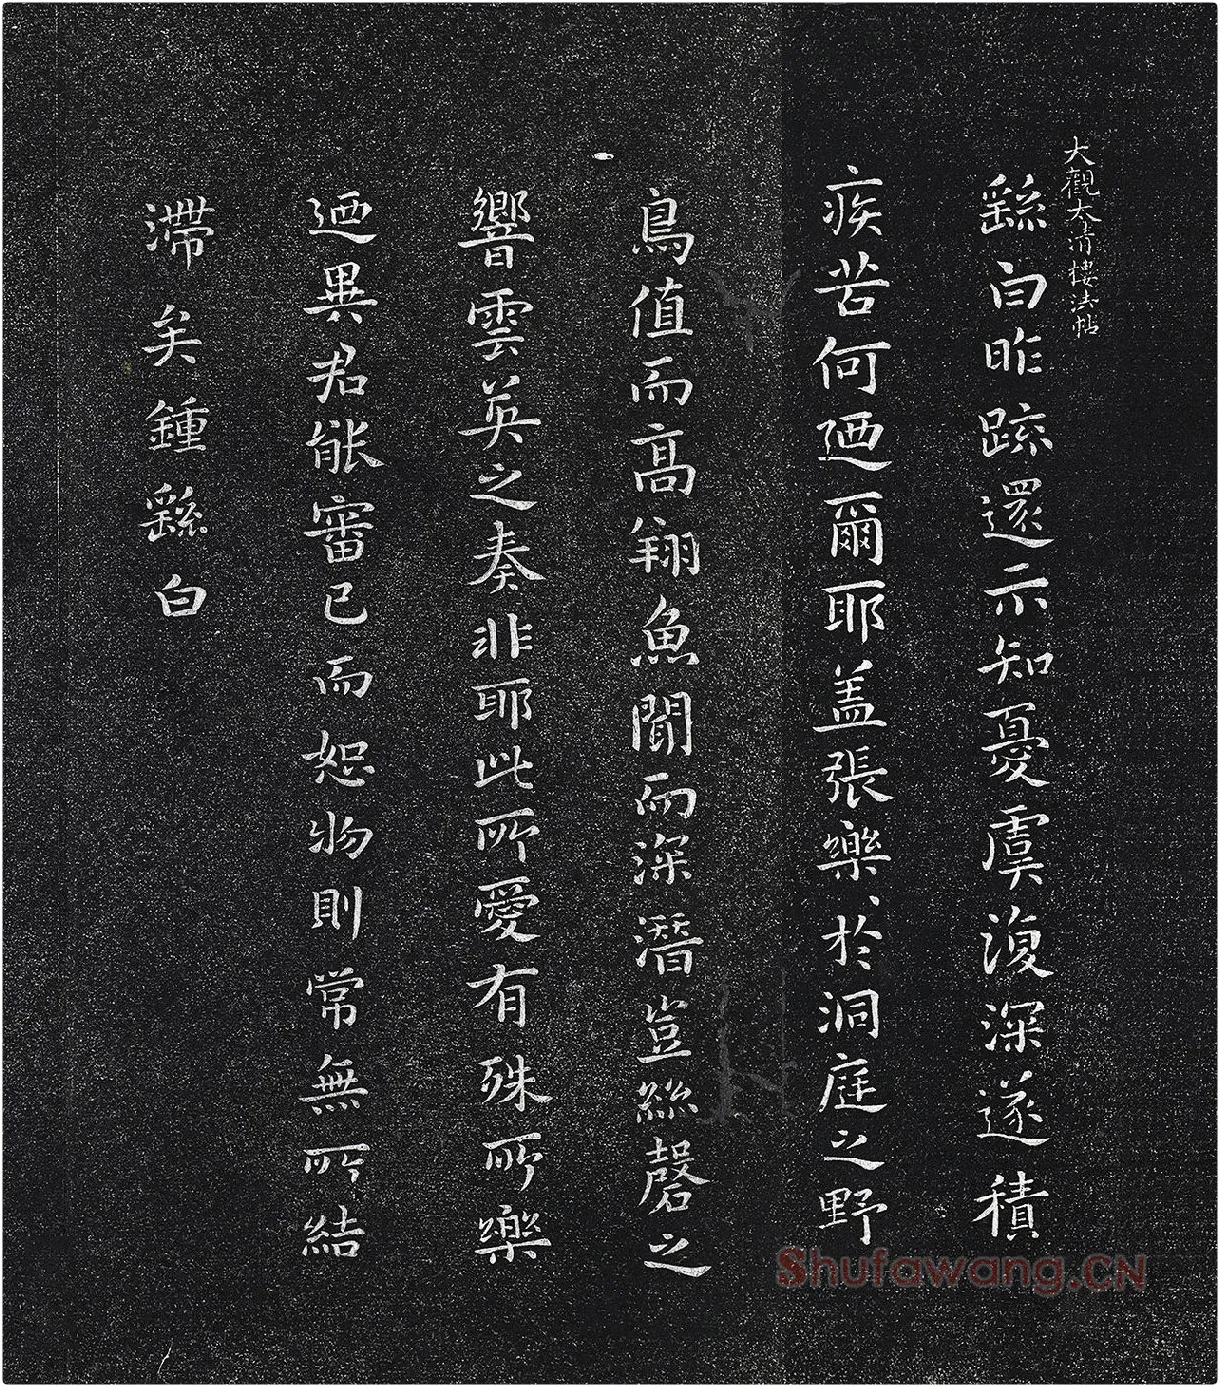 大觀太清樓法帖
繇白昨疏還示知憂虞復深遂積
疾苦何迺爾耶蓋張樂於洞庭之野
鳥值而高翔魚聞而深潛豈絲磬之
響雲英之奏非耶此所愛有殊所樂
迺異君能審己而恕物則常無所結
滯矣鍾繇白
Shufawang.CN